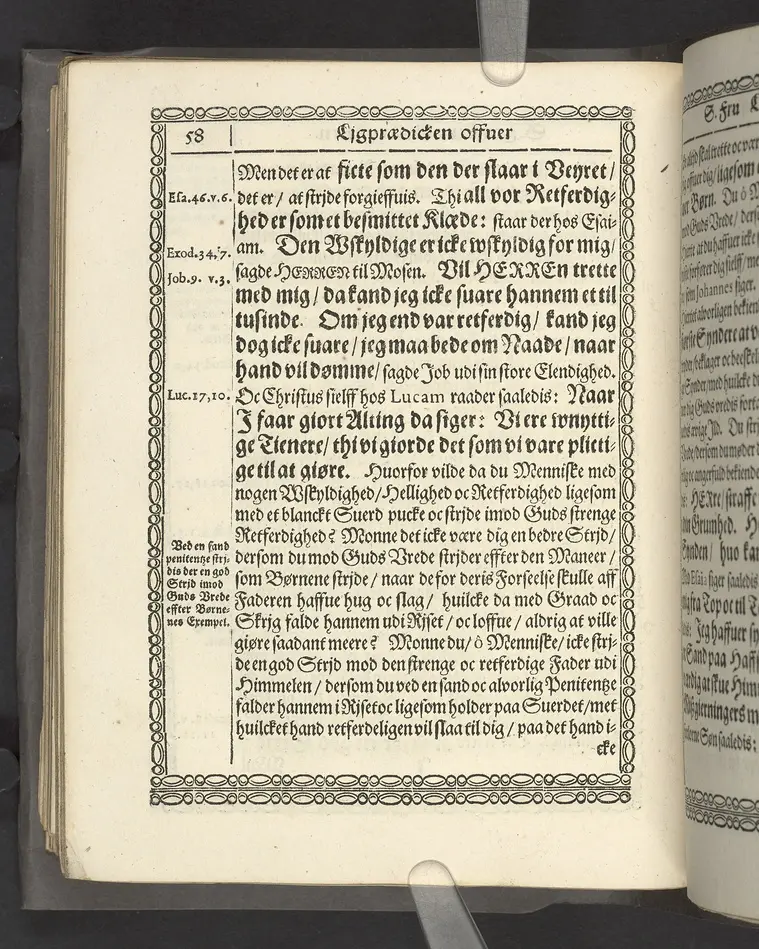 58
Ligprædicken offuer
Men det er at ficte som den der slaar i Veyret/
Esa.46.v.6.
det er/ at strjde forgieffuis. Thi all vor Retferdig-
hed er som et besmittet Klæde: staar der hos Esai-
Exod.34,7.
am. Den Wskyldige er icke wskyldig for mig/
Job.9. v.3.
sagde HERREN til Mosen. Vil HERREn trette
med mig/ da kand jeg icke suare hannem et til
tusinde. Om jeg end var retferdig/ kand jeg
dog icke suare/ jeg maa bede om Naade/ naar
hand vil dømme/ sagde Job udi sin store Elendighed.
Luc.17,10.
Oc Christus sielff hos Lucam raader saaledis: Naar
I faar giort Alting da siger: Vi ere wnytti-
ge Tienere/ thi vi giorde det som vi vare plicti-
ge til at giøre. Huorfor vilde da du Menniske med
nogen Wskyldighed/ Hellighed oc Retferdighed ligesom
med et blanckt Suerd pucke oc strjde imod Guds strenge
Retferdighed? Monne det icke være dig en bedre Strjd/
Ved en sand
penitentze strj-
dis der en god
Strid imod
Guds Vrede
effter Børne-
nes Exempel.
dersom du mod Guds Vrede strjder effter den Maneer/
som Børnene strjde/ naar de for deris Forseelse skulle aff
Faderen haffue hug oc slag/ huilcke da med Graad oc
Skrjg falde hannem udi Rjset/ oc loffue/ aldrig at ville
giøre saadant meere? Monne du/ ô Menniske/ icke strj-
de en god Strjd mod den strenge oc retferdige Fader udi
Himmelen/ dersom du ved en sand oc alvorlig Penitentze
falder hannem i Rjset oc ligesom holder paa Suerdet/ met
huilcket hand retferdeligen vil slaa til dig/ paa det hand i-
cke
S. Fru